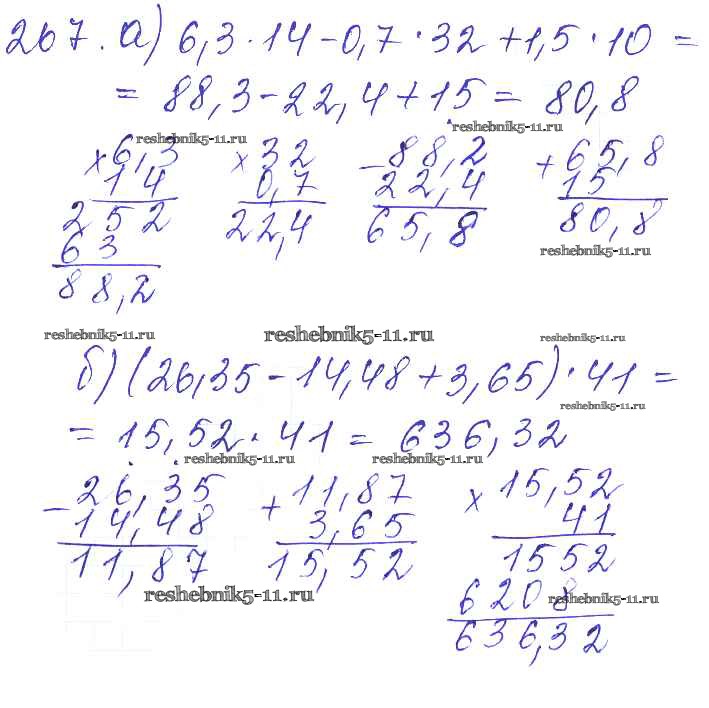 267. а) 6,3 · 14 - 0,7 · 32 + 1,5 · 10 =
= 88,3 - 22,4 + 15 = 80,8
reshebnik5-11.ru reshebnik5-11.ru
× 6,3 × 32 - 88,2 + 65,8
14 0,7 22,4 15
252 22,4 65,8 80,8
63
reshebnik5-11.ru
88,2
reshebnik5-11.ru reshebnik5-11.ru reshebnik5-11.ru
б) (26,35 - 14,48 + 3,65) · 41 =
reshebnik5-11.ru
= 15,52 · 41 = 636,32
reshebnik5-11.ru reshebnik5-11.ru
- 26,35 + 11,87 × 15,52
14,48 3,65 41
11,87 15,52 1552
reshebnik5-11.ru reshebnik5-11.ru
6208
636,32